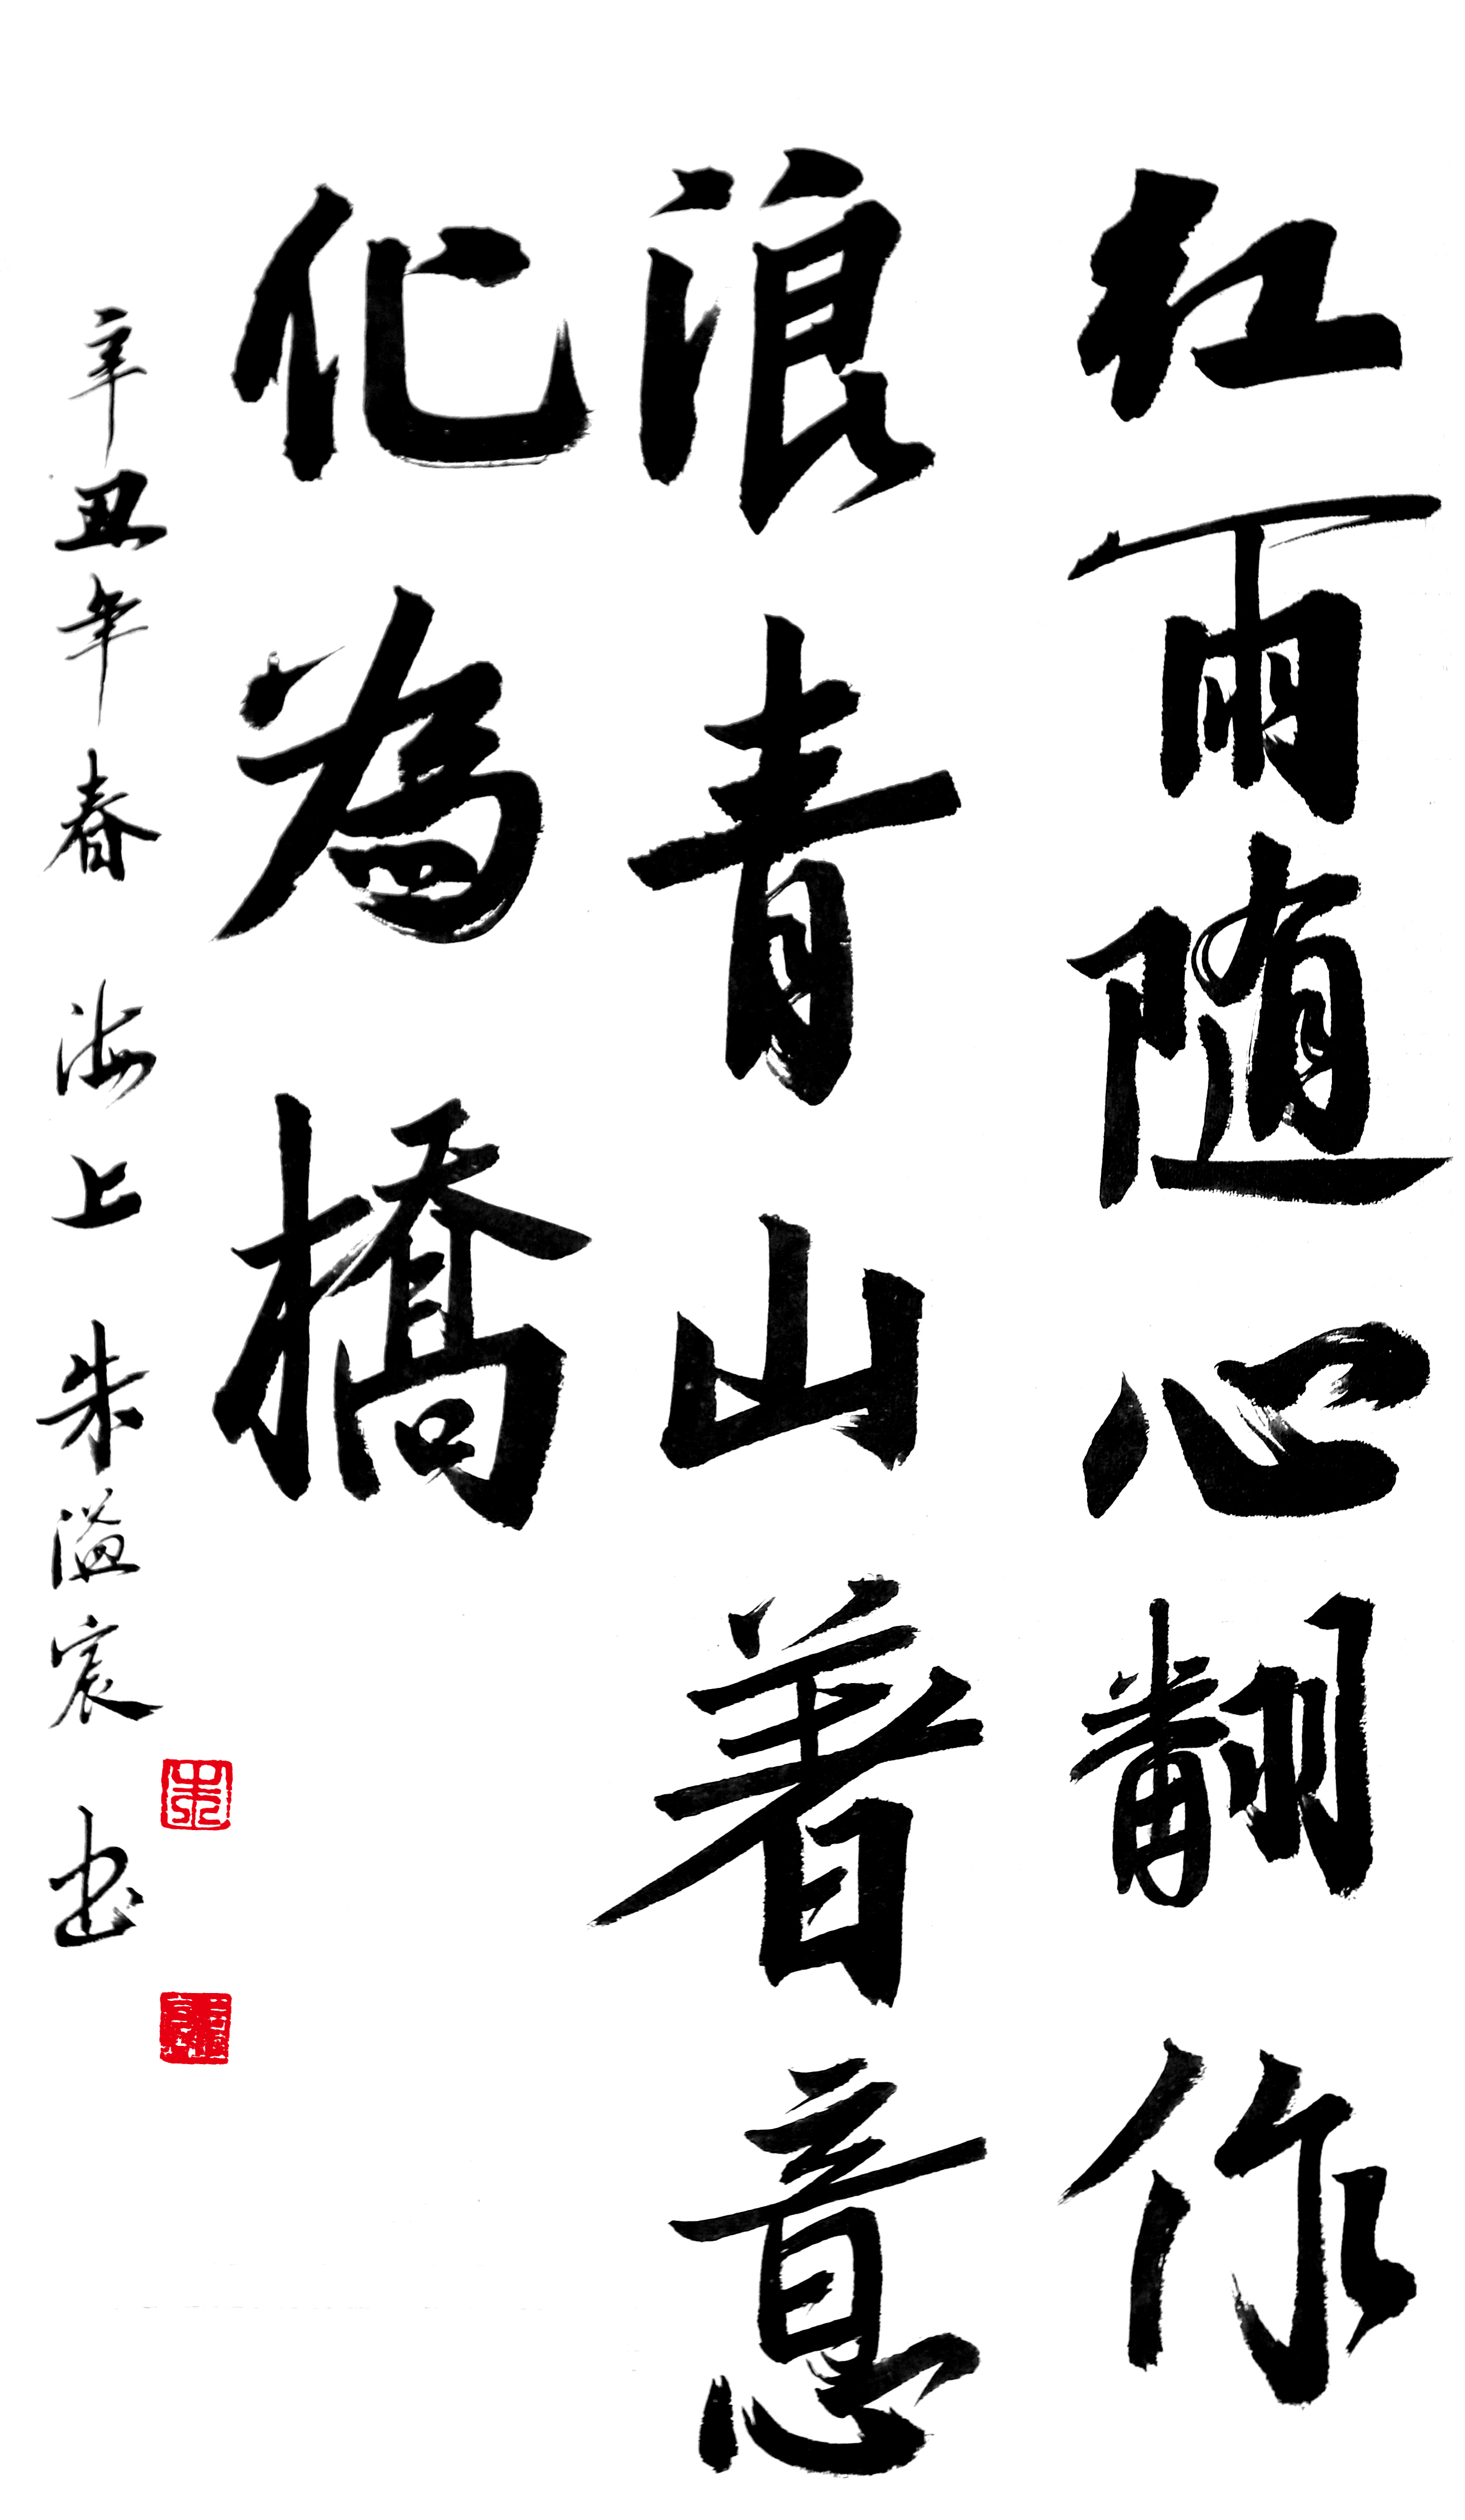 红雨随心翻作
浪青山着意
化為橋
辛丑年春 海上 朱溢宸 书
朱